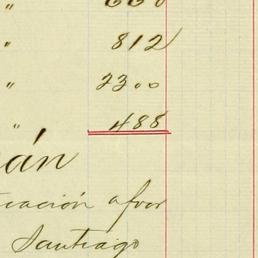 " 660
" 812
" 2300
" 488
án
cación a favor
Santiago